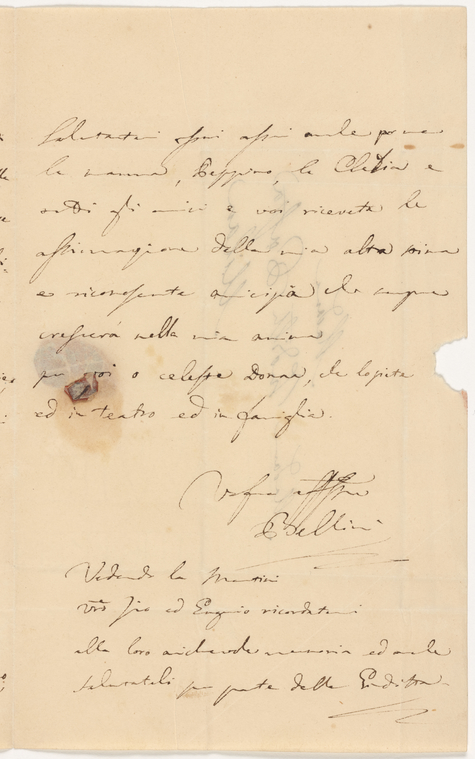 Salutatemi assai assai anche
la mamma, Peppino, la Clelia e
tutti gli amici e voi ricevete le
della mia alta stima
e riconoscente amicizia che sempre
crescerà nella mia anima
per voi o celeste Donna,
ed in teatro ed in famiglia.
Vostro affmo
Bellini
Vedendo la
ed Eugenio ricordatemi
alla loro memoria ed anche
salutateli per parte della